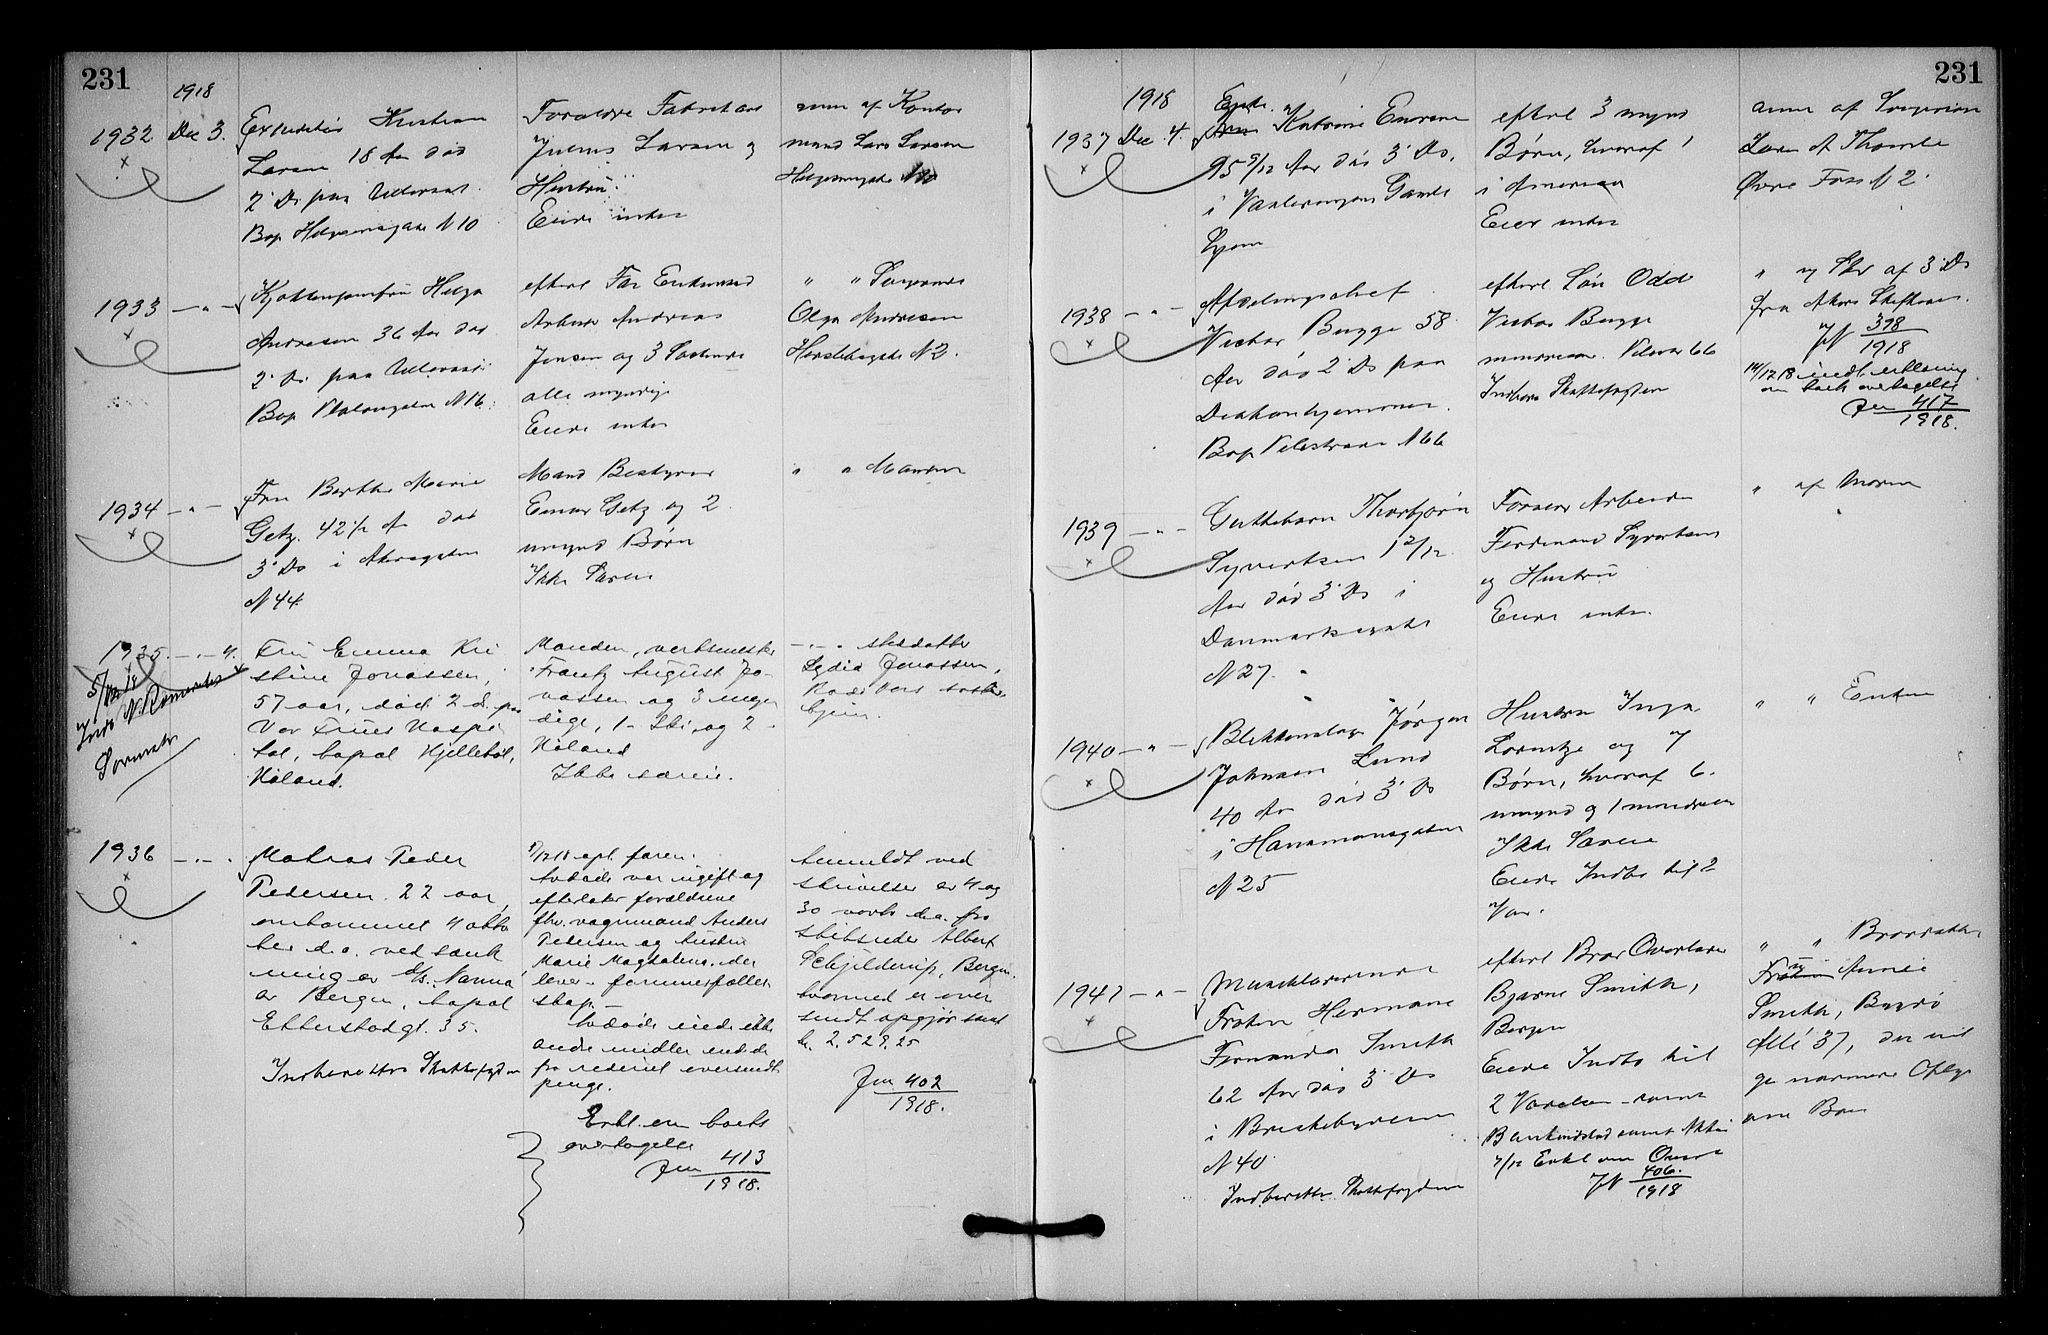 231
1918
1932 Dec 3. Expeditør Kristian
Larsen 18 Aar død
2' Ds paa Ullevaal
Bop Helgesensgade N 10
Forældre
Julius Larsen og
Hustru
Eiede intet
anm af Kontor
mand Lars Larsen
Helgesensgade N 10
1933 — " — Kjøkkenjomfru Helga
Andresen 36 Aar død
2' Ds paa Ullevaal
Bop N 16.
efterl Far Enkemand
Arbeider Andreas
Jensen og 3 Søskende
alle myndige
Eiede intet
" "
Olga Andresen
N 2.
1934 — " — Fru Berthe Marie
Getz 42 1/2 Aar død
3' Ds i Akersgaten
N 44.
Mand Bestyrer
Einar Getz og 2
umynd Børn
Ikke Særeie
" " Manden
1935. — " — 4. Fru Emma Kri
stine Jonassen,
57 aar, død 2 d. paa
Vor Frues Hospi
tal, bopæl Kjelleböl,
Höland.
Manden,
Frantz August Jo
nassen og 3 myn
dige, 1 - Ski og 2 -
Höland
Ikke særeie.
— " — stedatter
Lydia Jonassen,
Røde Kors søster
hjem.
1936 — " — Matros Peder
Pedersen. 22 aar,
omkommet 4 okto
ber d.a. ved sænk
ning av d/s. Nanna
av Bergen, bopæl
Etterstadgt. 35.
Indberettes Skattefogden
Avdøde var ugift og
efterlater forældrene
fhv. vognmand Anders
Pedersen og hustru
Marie Magdalena, der
lever i formuesfælles
skap.
Avdøde eiede ikke
andre midler end de
fra rederiet oversendte
penge.
Erkl. om boets
overtagelse
Jnr 413
1918.
Anmeldt ved
skrivelser av 4 og
30 novbr d.a. fra
skibsreder Albert
Schjelderup, Bergen.
hvormed er over
sendt opgjør samt
kr. 2.529.25
Jnr 402
1918.
231
1918
1937 Dec 4. Enke
Katrine
95 9/12 Aar død 3' Ds.
i Vaalerengens Gamle
hjem
efterl 3 mynd
Børn, hvoraf 1
i Amerika
Eier intet
anm af
Thomle
Øvre Foss N 2.
1938 — " — Afdelingschef
Victor Bugge 58
Aar død 2' Ds paa
Diakonhjemmet.
Bop N 66
efterl Søn Odd
Victor Bugge
mindreaar. 66
Indberes Skattefogden
" ved Skr af 3' Ds
fra Akers Skifteret.
JN 398
1918
14/12 18 indt. erklæring
om boets overtagelse
Jnr 417
1918.
1939 — " — Guttebarn Thorbjørn
Syvertsen 1 2/12
Aar død 3' Ds i
Danmarksgade
N 27.
Forældre Arbeider
Ferdinand Syvertsen
og Hustru
Eiede intet.
" af Moren
1940 — " — Blikkenslager Jørgen
Johnsen Lund
40 Aar død 3' Ds
i Hausmannsgaten
N 25
Hustru Inga
Lorentze og 7
Børn, hvoraf 6
umynd og 1 mindreaar
Ikke Særeie
Eiede Indbo til 2
Vær.
" " Enken
1941 — " — Musiklærerinde
Frøken Hermane
Fernanda Smith
62 Aar død 3' Ds
i Briskebyveien
N 40
Indberettes Skattefogden
efterl Bror Overlærer
Bjarne Smith,
Bergen
Eiede Indbo til
2 Værelser samt
Bankindskud samt Aktier
7/12 Erkl om Overt
JN 406.
1918
" " Brordatter
Annie
Smith, Bygdø
Allé 37, der vil
gi nærmere Oplys
om Boet